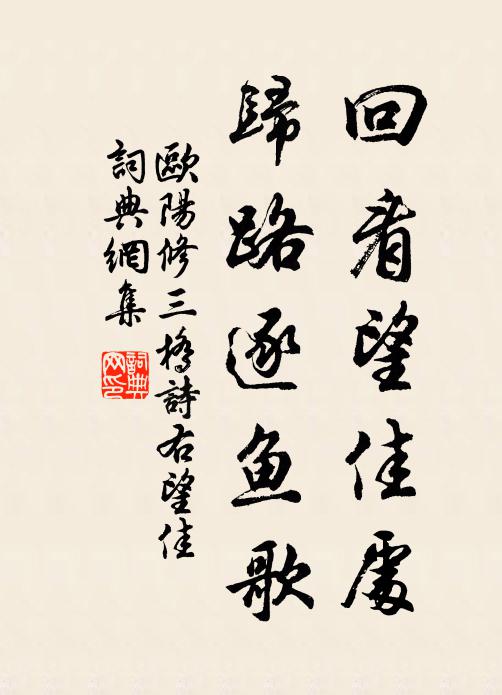 回看望佳處
歸路逐鱼歌
歐陽修三橋詩右望佳
詞典網集
詞典
网印